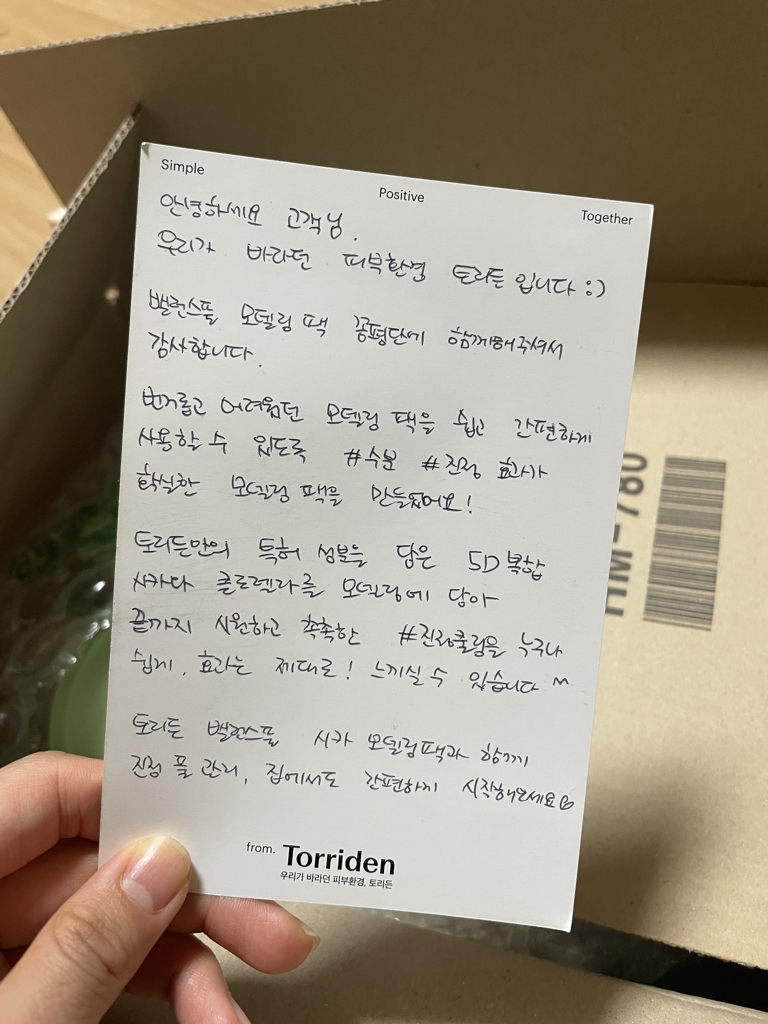 Simple
Positive
Together
안녕하세요 고객님.
우리가 바라던 피부환경 토리든입니다 :)
밸런스풀 모델링 팩 품평단에 함께해주셔서
감사합니다.
번거롭고 어려웠던 모델링 팩을 쉽고 간편하게
사용할 수 있도록 #수분 #진정 효과가
확실한 모델링 팩을 만들었어요!
토리든만의 특허 성분을 담은 5D 복합
시카와 클로렐라를 모델링에 담아
끝까지 시원하고 촉촉한 #진정쿨링을 누구나
쉽게, 효과는 제대로! 느끼실 수 있습니다 ^
토리든 밸런스풀 시카 모델링팩과 함께
진정 풀 관리, 집에서도 간편하게 시작해보세요
from. Torriden
우리가 바라던 피부환경, 토리든
HM-780